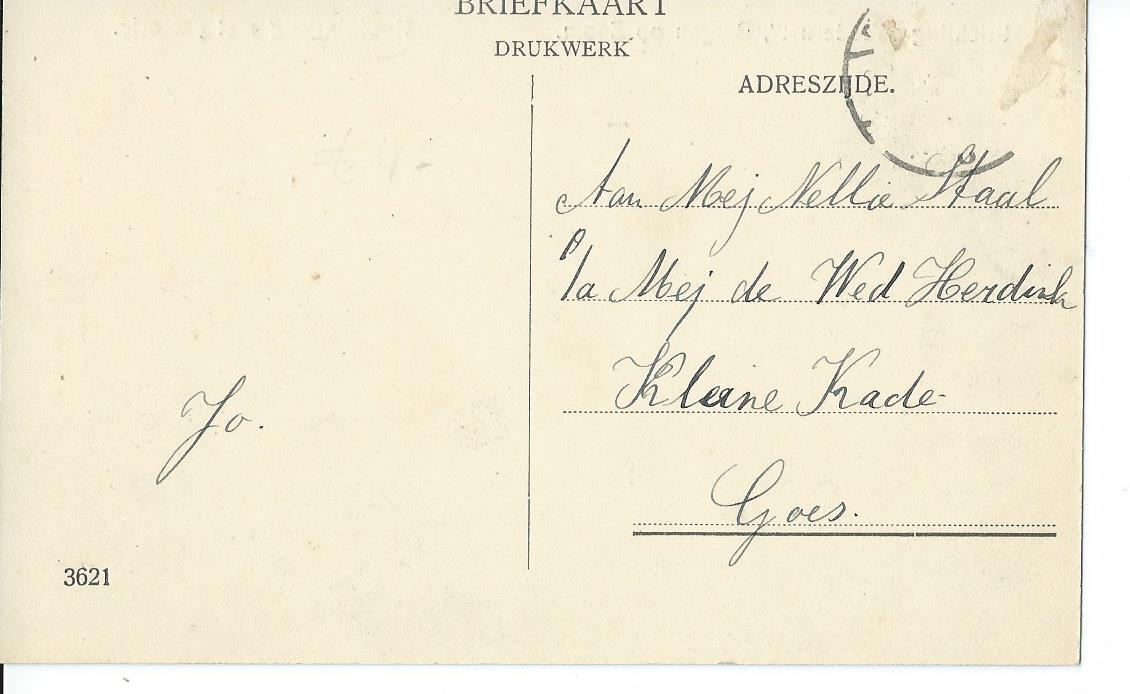 BRIEFKAART
DRUKWERK
ADRESZIJDE.
Aan Mej Nellie Staal
P/a Mej de Wed Herdink
Kleine Kade
Goes.
Jo.
3621